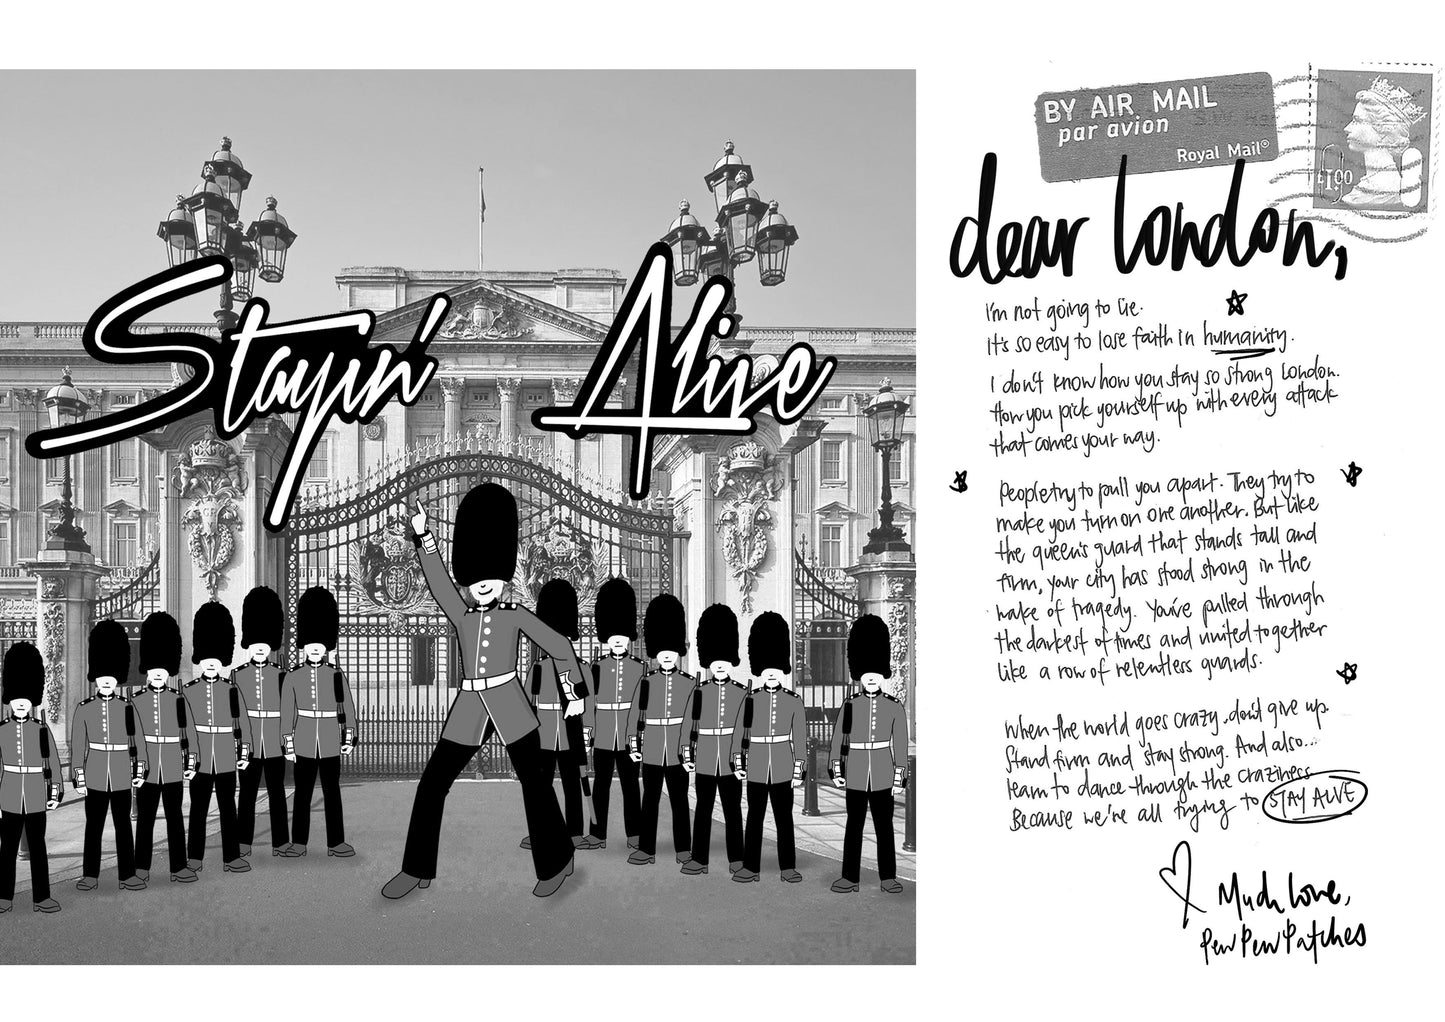 Stayin' Alive
BY AIR MAIL
par avion
Royal Mail®
£1.00
dear London,
I'm not going to lie.
It's so easy to lose faith in humanity.
I don't know how you stay so strong London.
How you pick yourself up with every attack
that comes your way.
People try to pull you apart. They try to
make you turn on one another. But like
the queen's guard that stands tall and
firm, your city has stood strong in the
wake of tragedy. You've pulled through
the darkest of times and united together
like a row of relentless guards.
When the world goes crazy, don't give up.
Stand firm and stay strong. And also...
learn to dance through the craziness
Because we're all trying to STAY ALIVE
Much Love,
PewPewPatches